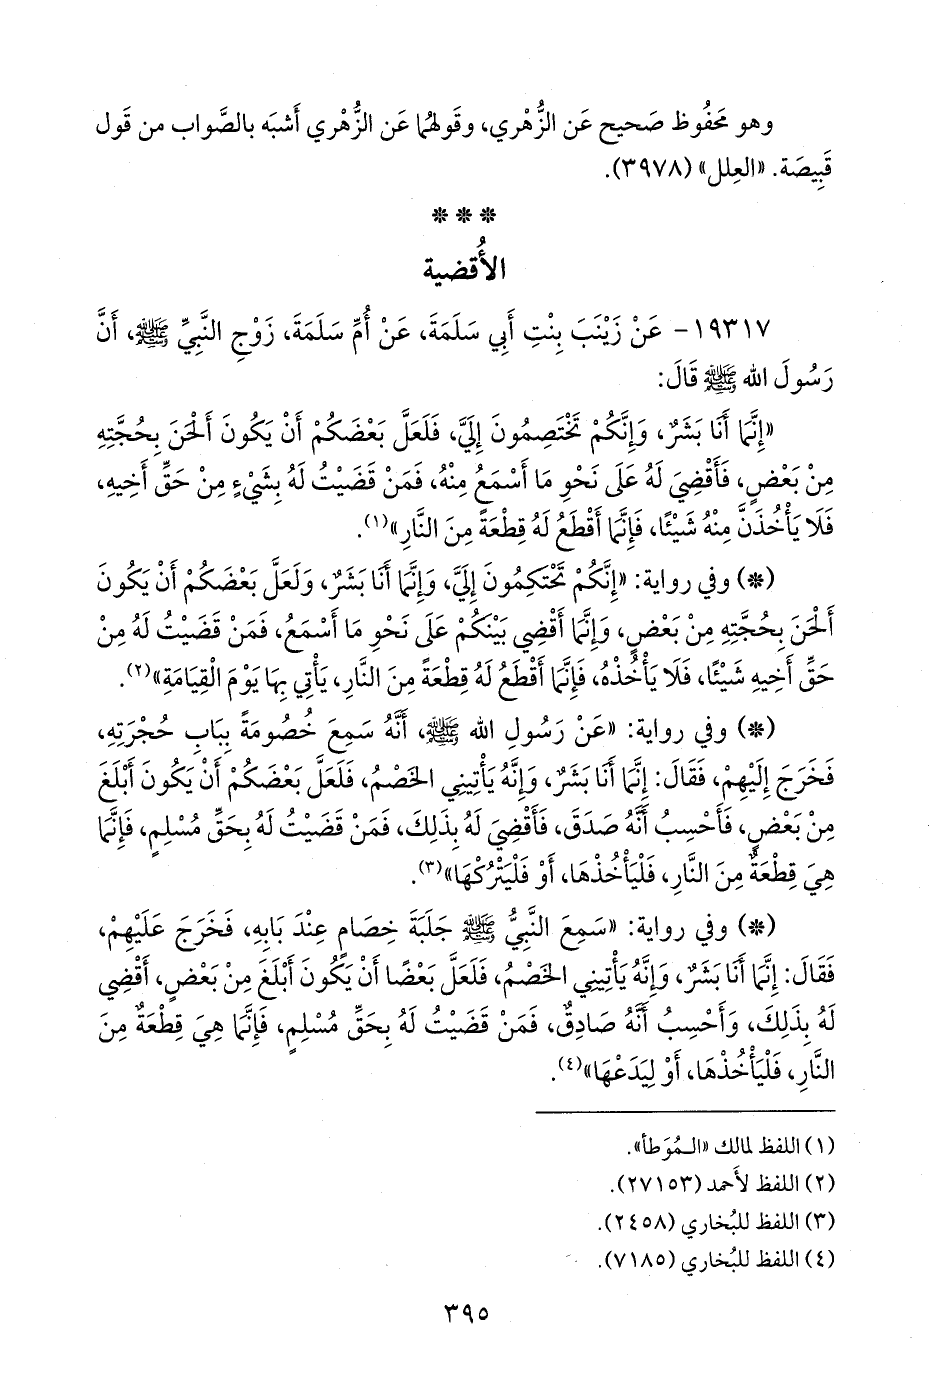 وهو مَحفُوظ صَحيح عَن الزُّهْري، وقَولهُما عَن الزُّهْري أَشبَه بالصَّواب من قَول
قَبِيصَة. «العِلل» (٣٩٧٨).
* * *
الأُقضية
١٩٣١٧- عَنْ زَيْنَبَ بِنْتِ أَبِي سَلَمَةَ، عَنْ أُمِّ سَلَمَةَ، زَوْجِ النَّبِيِّ ﷺ، أَنَّ
رَسُولَ الله ﷺ قَالَ:
«إِنَّمَا أَنَا بَشَرٌ، وَإِنَّكُمْ تَخْتَصِمُونَ إِلَيَّ، فَلَعَلَّ بَعْضَكُمْ أَنْ يَكُونَ أَلْحَنَ بِحُجَّتِهِ
مِنْ بَعْضٍ، فَأَقْضِيَ لَهُ عَلَى نَحْوِ مَا أَسْمَعُ مِنْهُ، فَمَنْ قَضَيْتُ لَهُ بِشَيْءٍ مِنْ حَقِّ أَخِيهِ،
فَلَا يَأْخُذَنَّ مِنْهُ شَيْئًا، فَإِنَّمَا أَقْطَعُ لَهُ قِطْعَةً مِنَ النَّارِ»(١).
(*) وفي رواية: «إِنَّكُمْ تَحْتَكِمُونَ إِلَيَّ، وَإِنَّمَا أَنَا بَشَرٌ، وَلَعَلَّ بَعْضَكُمْ أَنْ يَكُونَ
أَلْحَنَ بِحُجَّتِهِ مِنْ بَعْضٍ، وَإِنَّمَا أَقْضِي بَيْنَكُمْ عَلَى نَحْوِ مَا أَسْمَعُ، فَمَنْ قَضَيْتُ لَهُ مِنْ
حَقِّ أَخِيهِ شَيْئًا، فَلَا يَأْخُذْهُ، فَإِنَّمَا أَقْطَعُ لَهُ قِطْعَةً مِنَ النَّارِ، يَأْتِي بِهَا يَوْمَ الْقِيَامَةِ»(٢).
(*) وفي رواية: «عَنْ رَسُولِ الله ﷺ، أَنَّهُ سَمِعَ خُصُومَةً بِبَابِ حُجْرَتِهِ،
فَخَرَجَ إِلَيْهِمْ، فَقَالَ: إِنَّمَا أَنَا بَشَرٌ، وَإِنَّهُ يَأْتِينِي الخَصْمُ، فَلَعَلَّ بَعْضَكُمْ أَنْ يَكُونَ أَبْلَغَ
مِنْ بَعْضٍ، فَأَحْسِبُ أَنَّهُ صَدَقَ، فَأَقْضِيَ لَهُ بِذَلِكَ، فَمَنْ قَضَيْتُ لَهُ بِحَقِّ مُسْلِمٍ، فَإِنَّمَا
هِيَ قِطْعَةٌ مِنَ النَّارِ، فَلْيَأْخُذْهَا، أَوْ فَلْيَتْرُكْهَا»(٣).
(*) وفي رواية: «سَمِعَ النَّبِيُّ ﷺ جَلَبَةَ خِصَامٍ عِنْدَ بَابِهِ، فَخَرَجَ عَلَيْهِمْ،
فَقَالَ: إِنَّمَا أَنَا بَشَرٌ، وَإِنَّهُ يَأْتِينِي الخَصْمُ، فَلَعَلَّ بَعْضًا أَنْ يَكُونَ أَبْلَغَ مِنْ بَعْضٍ، أَقْضِي
لَهُ بِذَلِكَ، وَأَحْسِبُ أَنَّهُ صَادِقٌ، فَمَنْ قَضَيْتُ لَهُ بِحَقِّ مُسْلِمٍ، فَإِنَّمَا هِيَ قِطْعَةٌ مِنَ
النَّارِ، فَلْيَأْخُذْهَا، أَوْ لِيَدَعْهَا»(٤).
(١) اللفظ لمالك «الـمُوَطأ».
(٢) اللفظ لأَحمد (٢٧١٥٣).
(٣) اللفظ للبُخاري (٢٤٥٨).
(٤) اللفظ للبُخاري (٧١٨٥).
٣٩٥